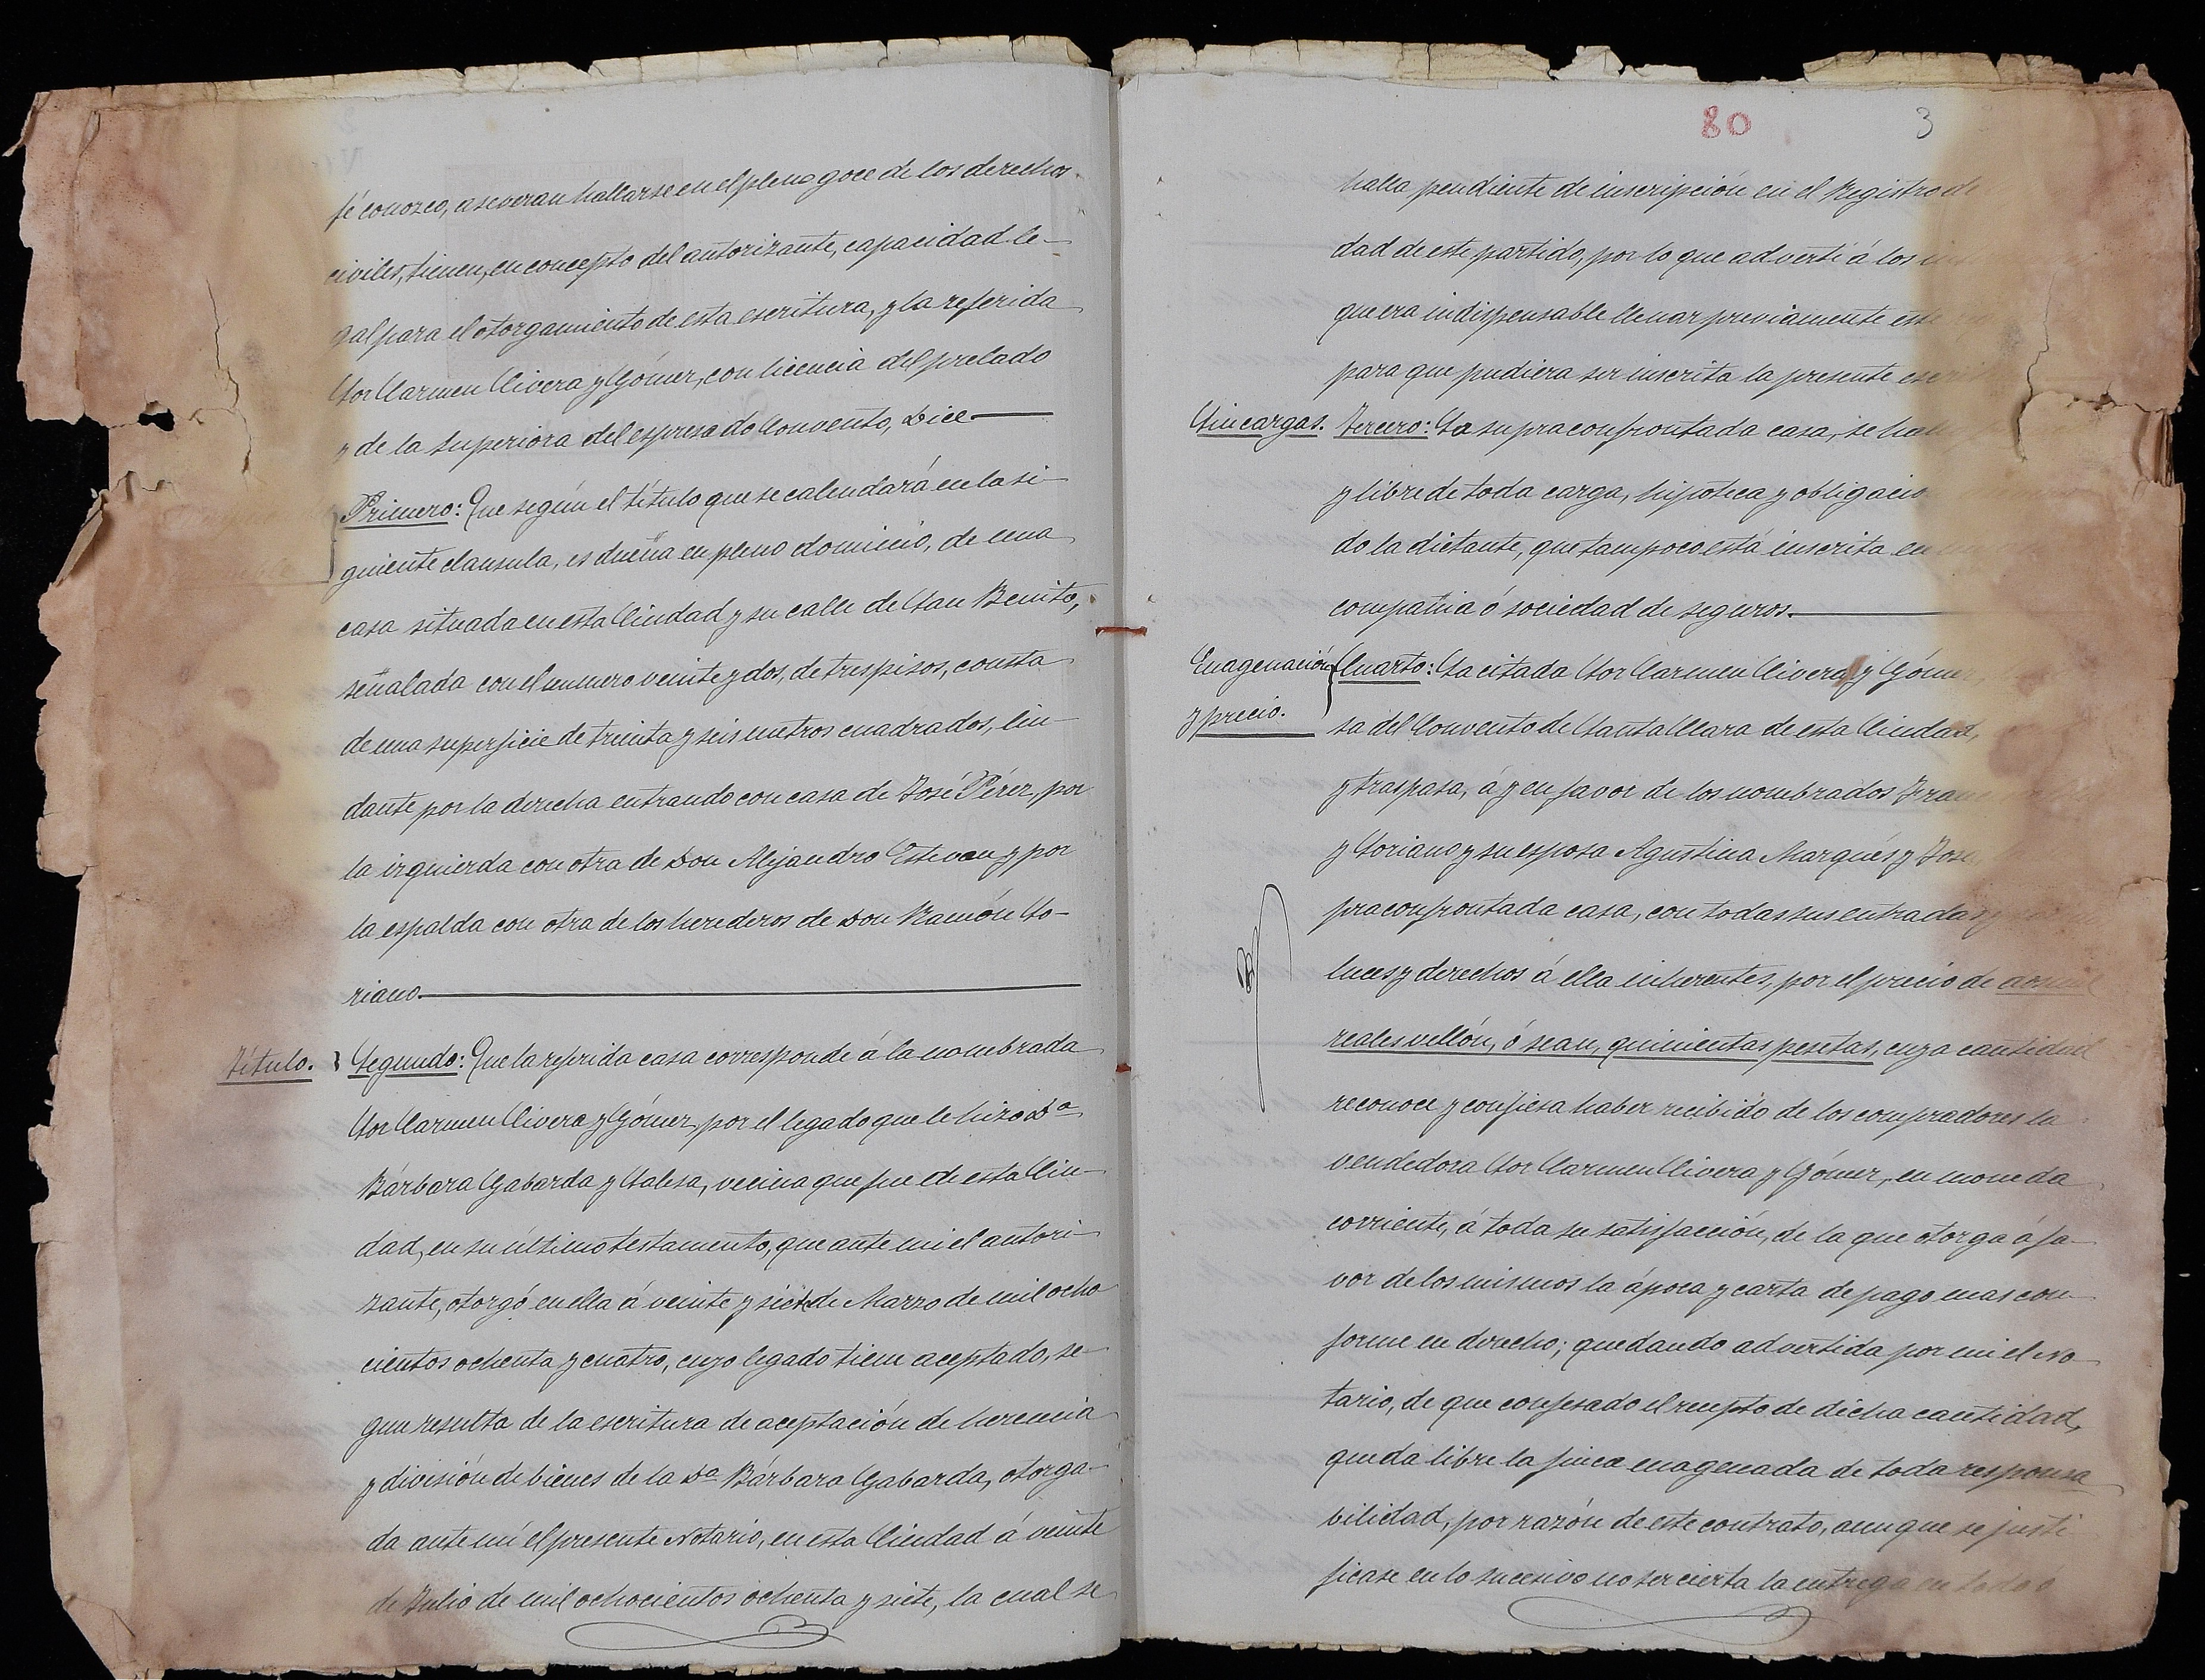 fé conozco, aseveran hallarse en el pleno goce de los derechos
civiles, tienen, en concepto del autorizante, capacidad le-
gal para el otorgamiento de esta escritura, y la referida
Sor Carmen Civera y Gómez, con licencia del prelado
y de la Superiora del espresado Convento, Dice
Primero: Que según el título que se calendará en la si-
guiente clausula, es dueña en pleno dominio, de una
casa situada en esta Ciudad y su calle de San Benito,
señalada con el numero veinte y dos, de tres pisos, consta
de una superficie de treinta y seis metros cuadrados, lin-
dante por la derecha entrando con casa de José Pérez, por
la izquierda con otra de Don Alejandro Estevan y por
la espalda con otra de los herederos de Don Ramón So-
riano.
Título. Segundo: Que la referida casa corresponde á la nombrada
Sor Carmen Civera y Gómez, por el legado que le hizo Da
Bárbara Gabarda y Salesa, vecina que fue de esta Ciu-
dad, en su último testamento, que ante mi el autori-
zante, otorgó en ella á veinte y siete de Marzo de mil ocho
cientos ochenta y cuatro, cuyo legado tiene aceptado, se-
gun resulta de la escritura de aceptación de herencia
y división de bienes de la Da Bárbara Gabarda, otorga-
da ante mí el presente Notario, en esta Ciudad á veinte
de Julio de mil ochocientos ochenta y siete, la cual se
80 3
halla pendiente de inscripción en el Registro de
dad de este partido, por lo que advertí á los
que era indispensable llenar previamente este
para que pudiera ser inscrita la presente escrit
Sin cargas. Tercero: La supraconfrontada casa, se hal
y libre de toda carga, hipoteca y obligacio
do la dictante, que tampoco está inscrita en
compañia ó sociedad de seguros.
Enagenación Cuarto: La citada Sor Carmen Civera y Gómez
y precio. sa del Convento de Santa Clara de esta Ciudad,
y traspasa, á y en favor de los nombrados Fran
y Soriano y su esposa Agustina Marqués y José
praconfrontada casa, con todas sus entradas y
luces y derechos á ella inherentes, por el precio de dos mil
reales vellón, ó sean, quinientas pesetas, cuya cantidad
reconoce y confiesa haber recibido de los compradores la
vendedora Sor Carmen Civera y Gómez, en moneda
corriente, á toda su satisfacción, de la que otorga á fa-
vor de los mismos la ápoca y carta de pago mas con-
forme en derecho; quedando advertida por mi el No-
tario, de que confesado el recepto de dicha cantidad,
queda libre la finca enagenada de toda responsa
bilidad, por razón de este contrato, aunque se justi
ficase en lo sucesivo no ser cierta la entrega en todo o